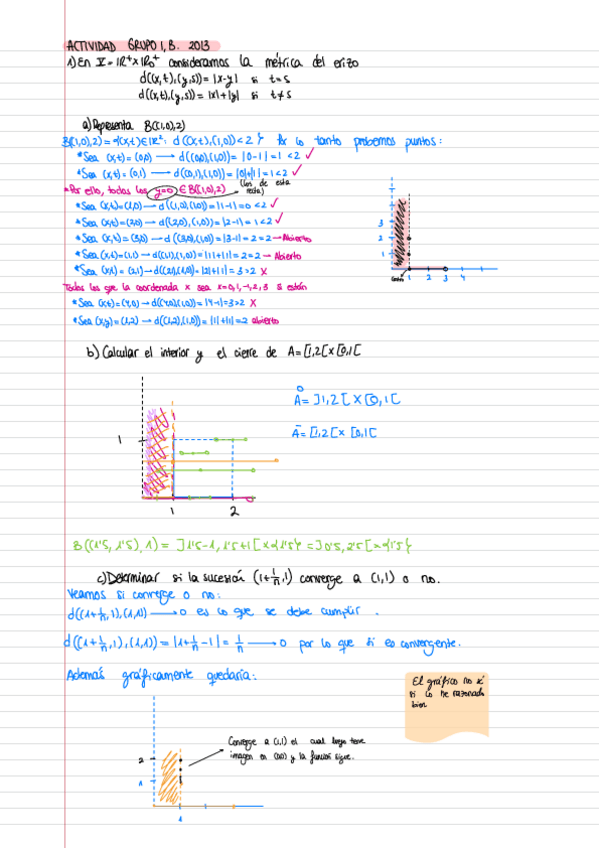 ACTIVIDAD GRUPO 1, B. 2013
1) En X = ℝ⁺ x ℝ₀⁺ consideramos la métrica del erizo
d((x,t),(y,s)) = |x-y| si t=s
d((x,t),(y,s)) = |x|+|y| si t≠s
a) Representa B((1,0),2)
B((1,0),2) = {(x,t)∈ℝ²: d((x,t),(1,0))<2} Por lo tanto probemos puntos:
*Sea (x,t)=(0,0) → d((0,0),(1,0)) = |0-1| = 1 <2 ✓
*Sea (x,t)=(0,1) → d((0,1),(1,0)) = |0|+|1| = 1 <2 ✓
*Por ello, todos los y=0 ∈ B((1,0),2) (los de esta recta)
*Sea (x,t)=(1,0) → d((1,0),(1,0)) = |1-1| = 0 <2 ✓
*Sea (x,t)=(2,0) → d((2,0),(1,0)) = |2-1| = 1 <2 ✓
*Sea (x,t)=(3,0) → d((3,0),(1,0)) = |3-1| = 2 = 2 → Abierto
*Sea (x,t)=(1,1) → d((1,1),(1,0)) = |1|+|1| = 2 = 2 → Abierto
*Sea (x,t) = (2,1) → d((2,1),(1,0)) = |2|+|1| = 3 >2 x
Todos los que la coordenada x sea x=0,1,-1,2,3 si están
*Sea (x,t)=(4,0) → d((4,0),(1,0)) = |4-1| = 3 >2 x
*Sea (x,y)=(1,2) → d((1,2),(1,0)) = |1|+|1| = 2 abierto
3
2
1
Centro
1 2 3 4
b) Calcular el interior y el cierre de A = [1,2[ x [0,1[
Å = ]1,2[ x [0,1[
Ā = [1,2[ x [0,1[
1
1 2
B((1'5, 1'5), 1) = ]1'5-1, 1'5+1[ x {1'5} = ]0'5, 2'5[ x {1'5}
c) Determinar si la sucesión (1+1/n, 1) converge a (1,1) o no.
Veamos si converge o no:
d((1+1/n, 1), (1,1)) → 0 es lo que se debe cumplir.
d((1+1/n, 1), (1,1)) = |1+1/n-1| = 1/n → 0 por lo que si es convergente.
Además gráficamente quedaría:
El gráfico no sé
si lo he razonado
bien
Converge a (1,1) el cual luego tiene
imagen en (0,0) y la función sigue.
2
1
1